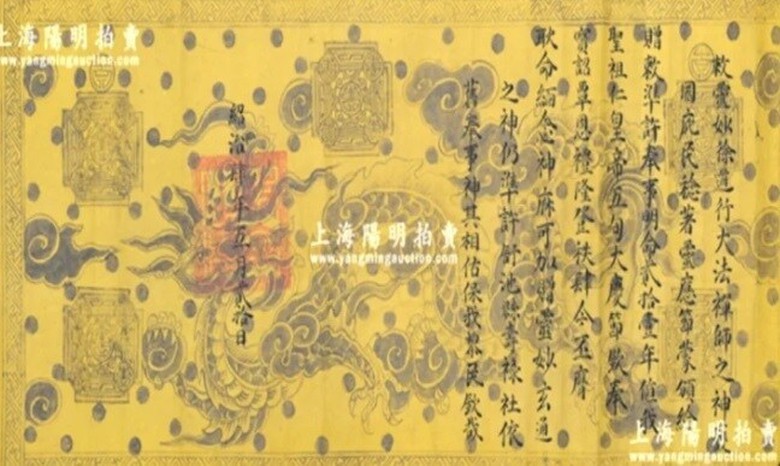 敕靈妙徐道行大法禪師之神護
國庇民稔著靈應節蒙頒給
贈敕準許奉事明命貳拾壹年値我
聖祖仁皇帝五旬大慶節欽奉
寶詔覃恩禮隆登秩肆今丕膺
耿命緬念神庥可加贈靈妙玄通
之神仍準許池縣壽祿社依
舊奉事神其相佑保我黎民欽哉
紹治肆年五月貳拾日
上海陽明拍賣
www.yangmingauction.com
上海陽明拍賣
www.yangmingauction.com
上海陽明拍賣
www.yangmingauction.com